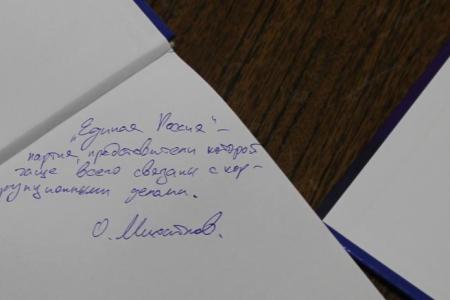 „Единая Россия" –
партия, представители которой
чаще всего связаны с кор-
рупционными делами.
О. Михайлов.